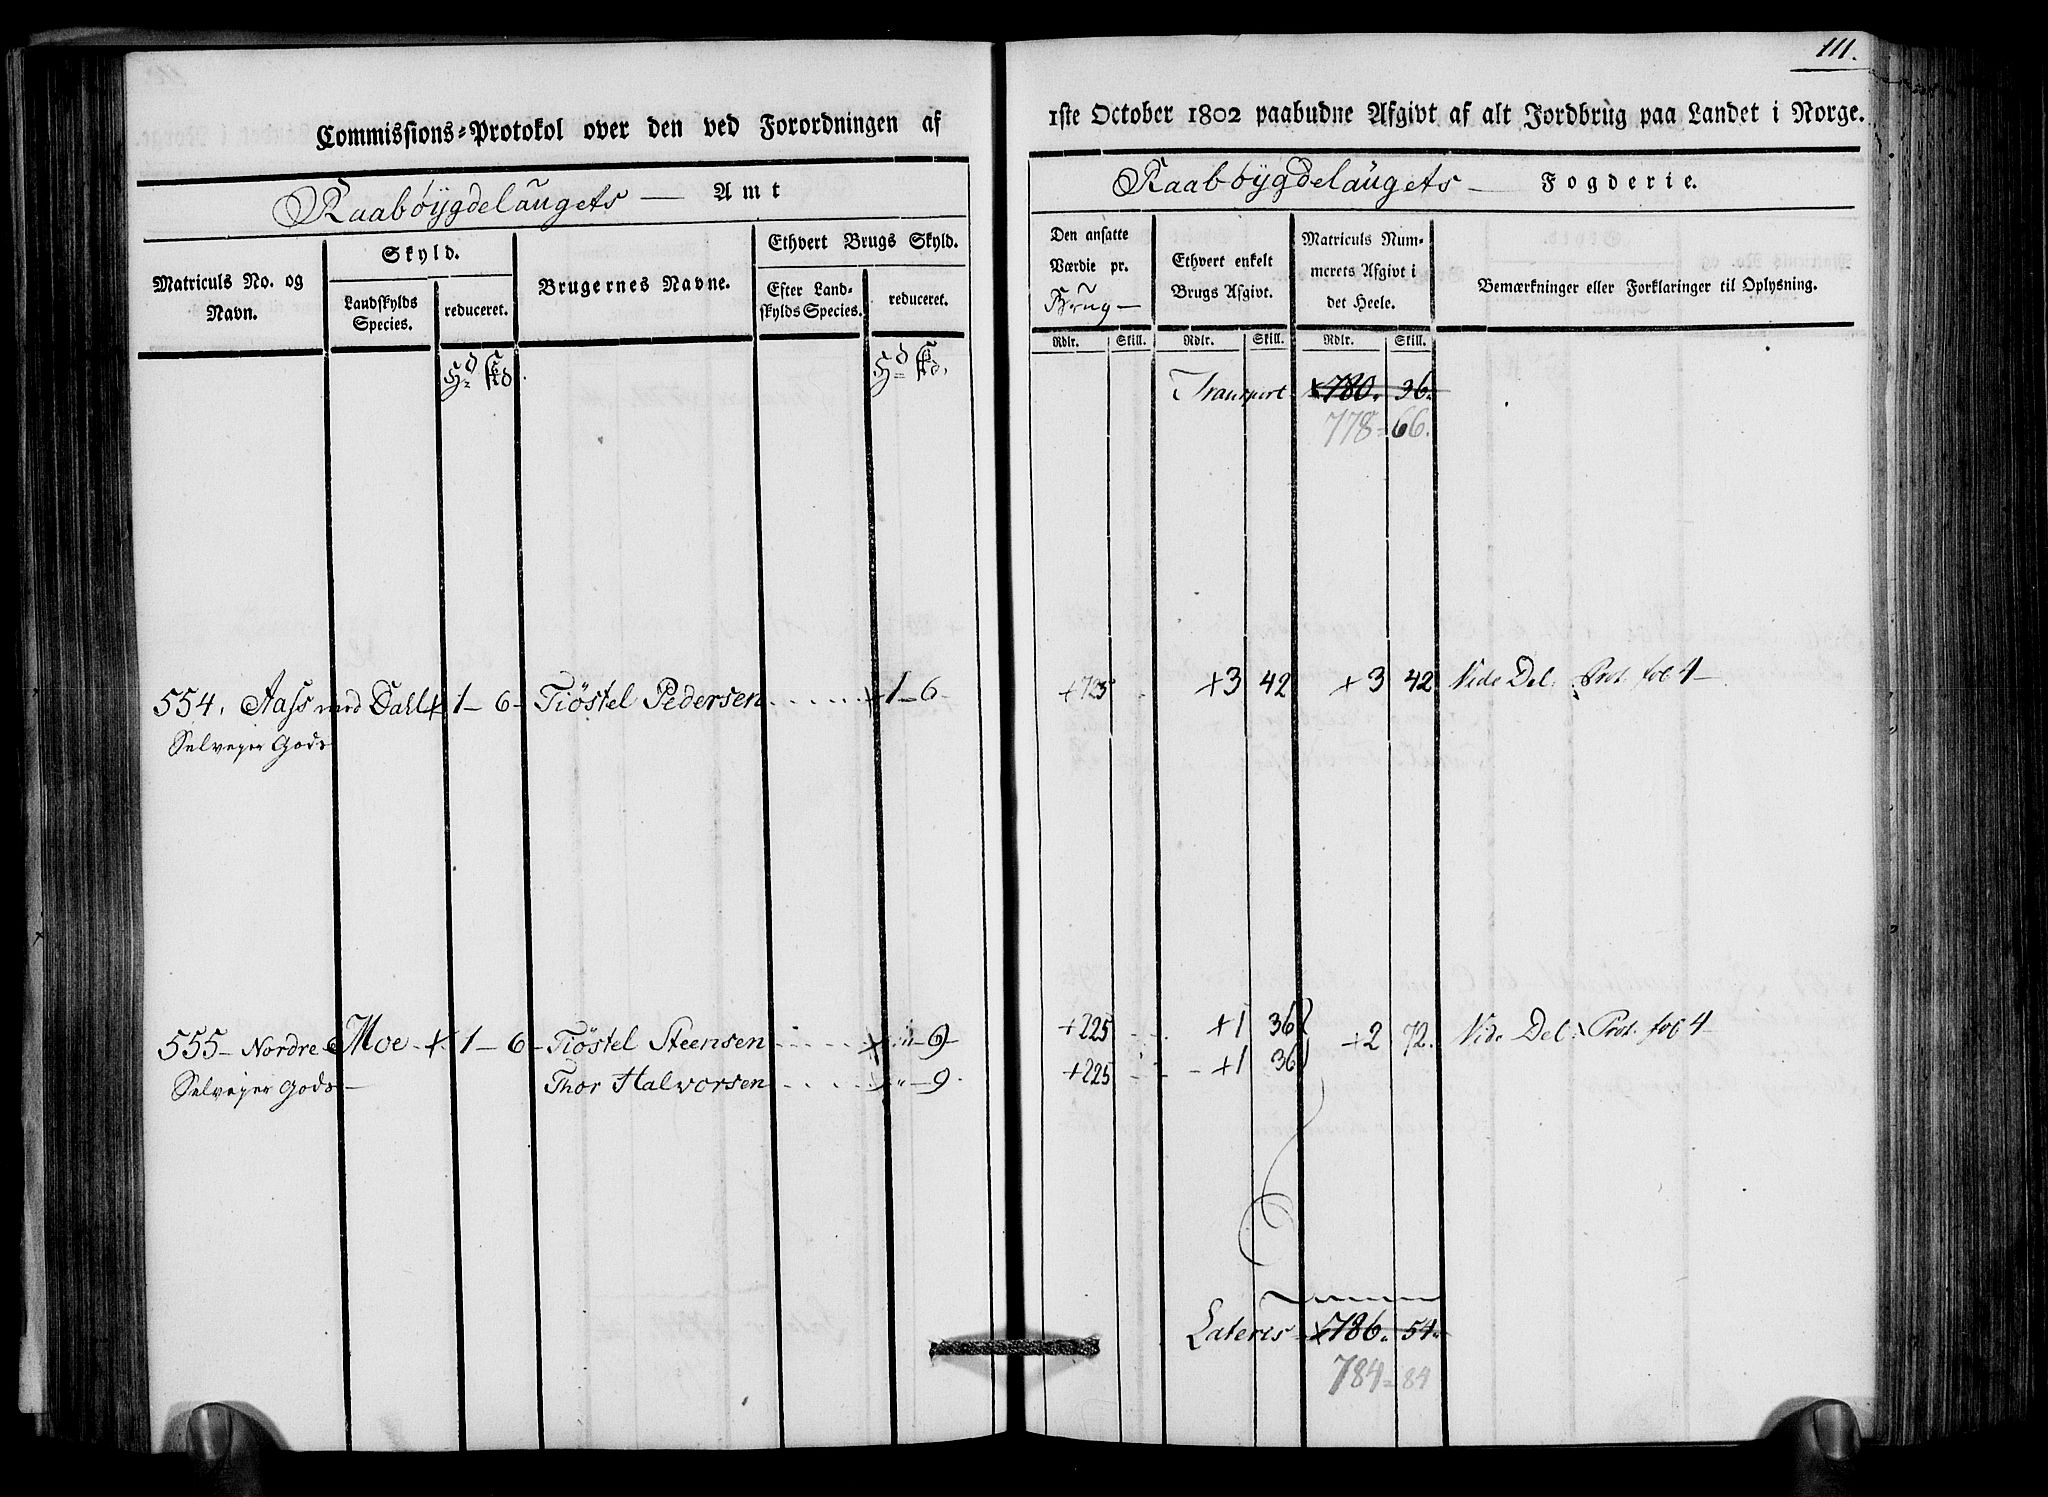 111.
Commissions-Protokol over den ved Forordningen af
1ste October 1802 paabudne Afgivt af alt Jordbrug paa Landet i Norge.
Raabøygdelaugets — Amt
Raabøygdelaugets — Fogderie.
Matriculs No. og Navn.
Skyld.
Landskylds Species.
reduceret.
Brugernes Navne.
Ethvert Brugs Skyld.
Efter Landskylds Species.
reduceret.
Den ansatte Værdie pr. Brug —
Ethvert enkelt Brugs Afgivt.
Matriculs Nummerets Afgivt i det Heele.
Bemærkninger eller Forklaringer til Oplysning.
Rdlr. Skill. Rdlr. Skill. Rdlr. Skill.
Hd Skd
Hd Skd.
Transport +780. 36.
778=66.
554. Aass med Dahl + 1 — 6 — Tiøstel Pedersen + 1 — 6 — +725 +3 42 +3 42 Vide Del. Prot. fol 4 —
Selveyer Gods
555 — Nordre Moe + 1 — 6 — Tiøstel Steensen + " — 9 — +225 +1 36 +2 72. Vide Del. Prot. fol 4 —
Selveyer Gods — Thor Halvorsen " — 9. +225 +1 36
Lateris +786. 54.
784=84